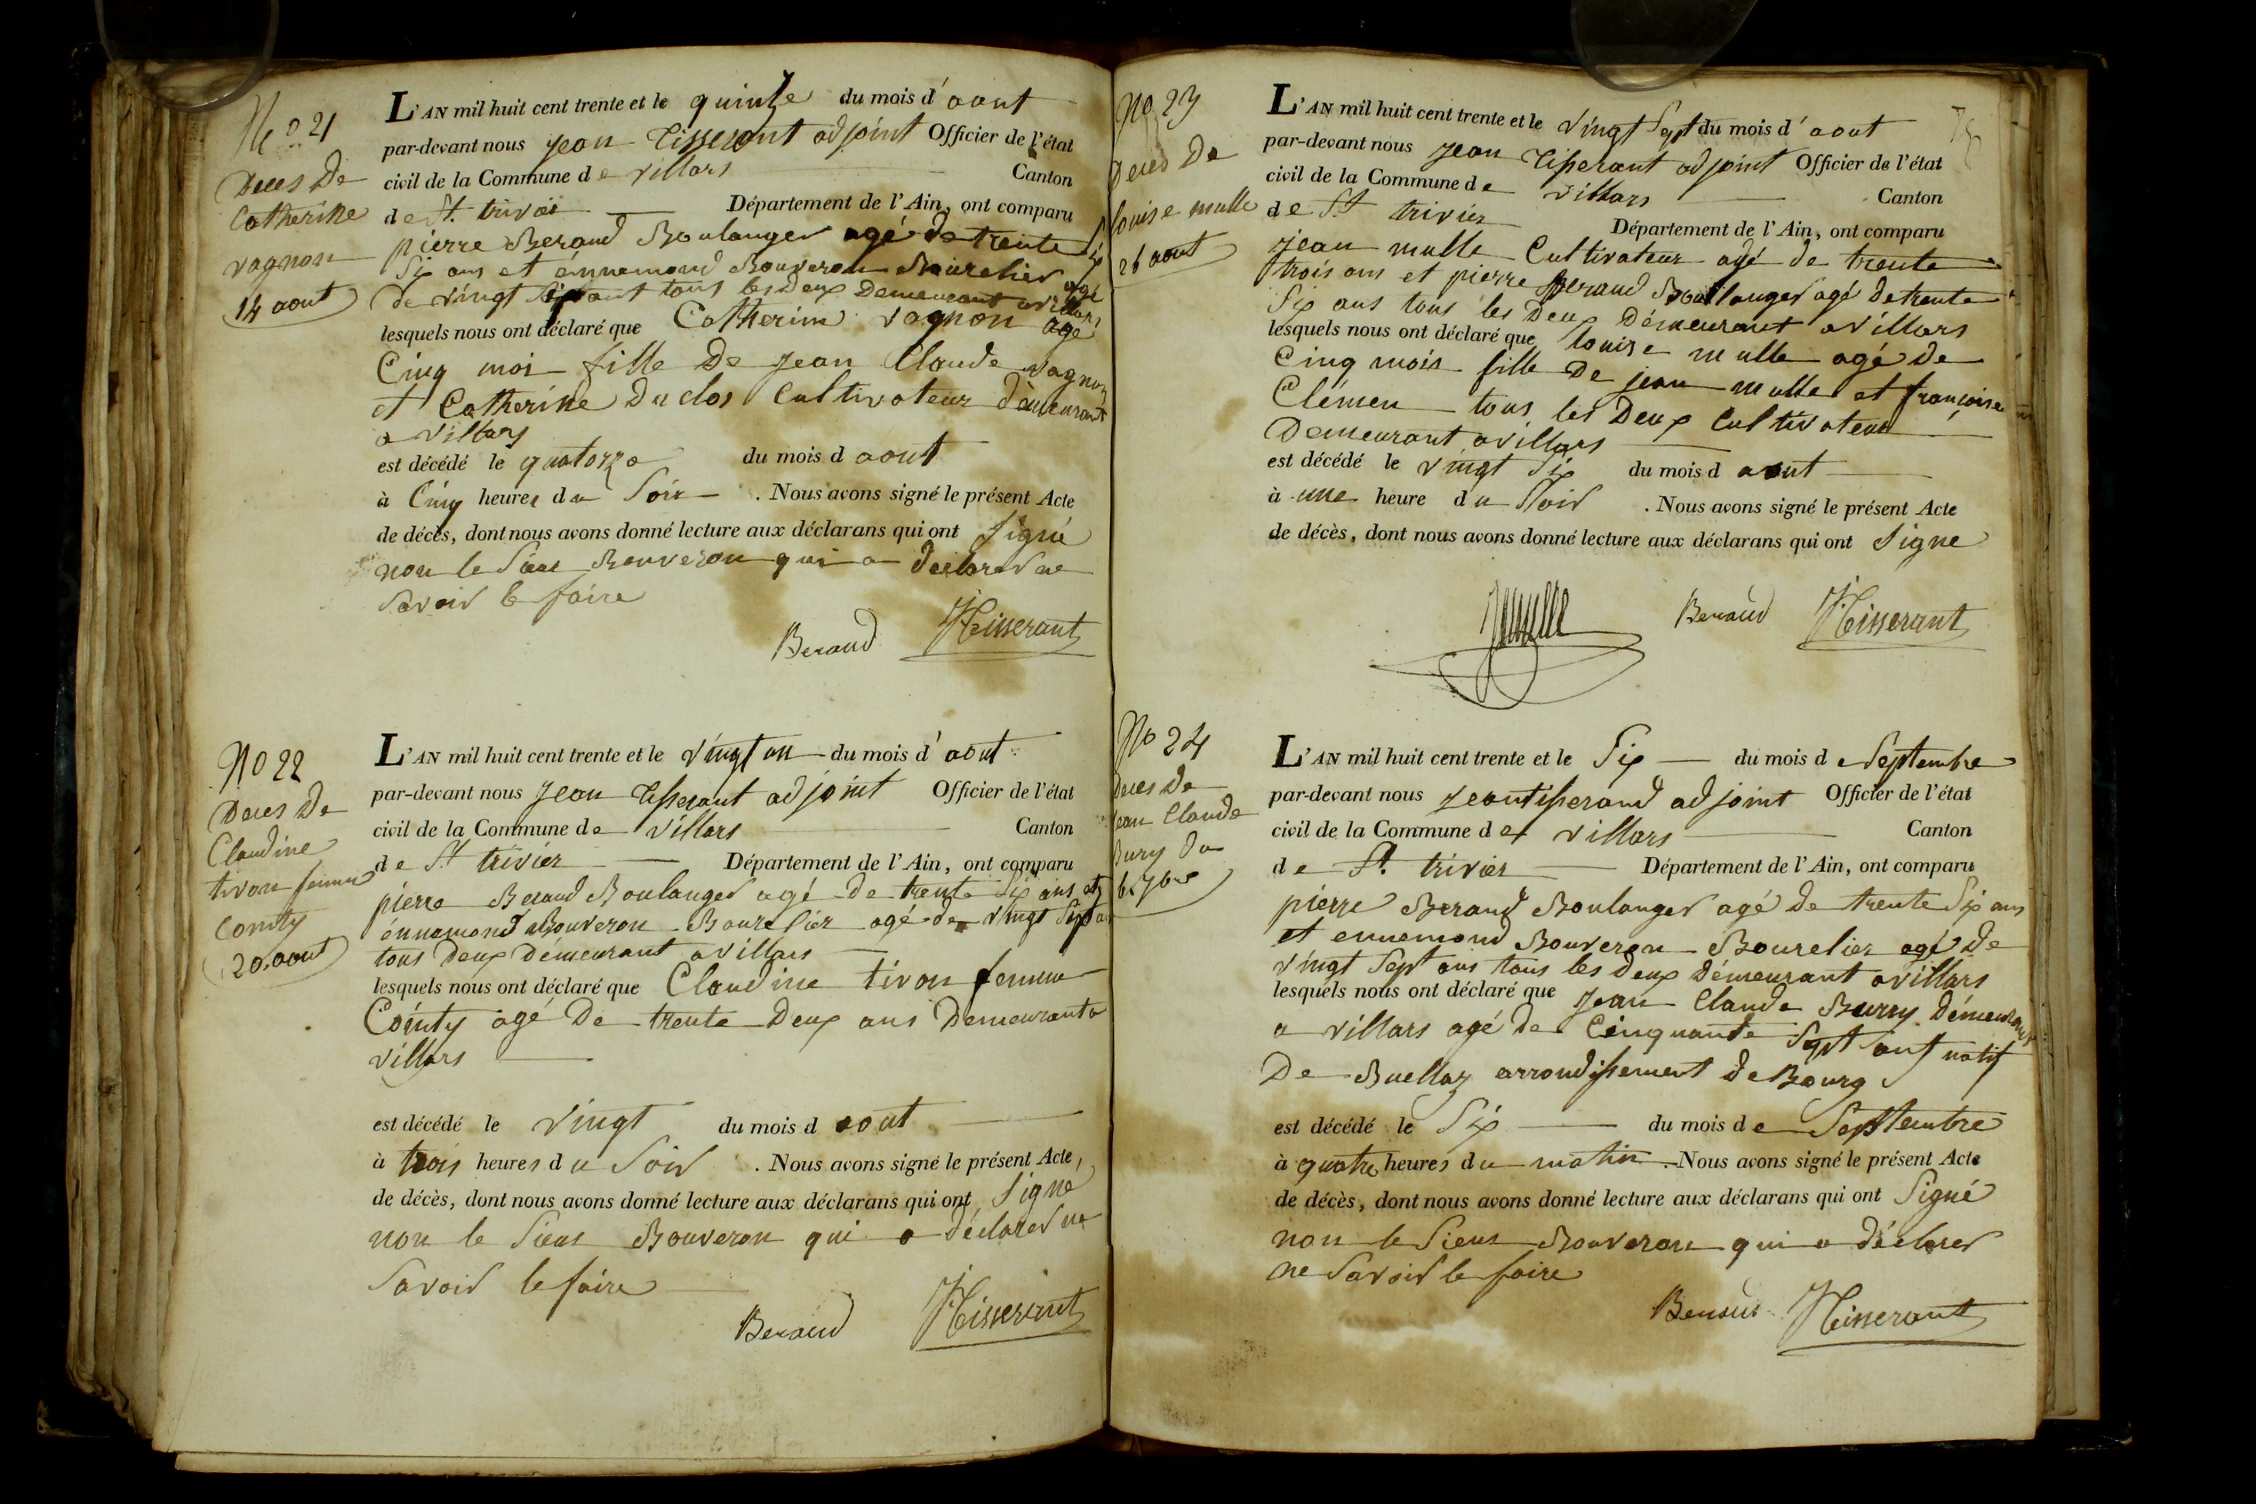 No 21
Deces De
Catherine
vagnon
14 aout
L'AN mil huit cent trente et le quinze du mois d'aout
par-devant nous jean Tisserant adjoint Officier de l'état
civil de la Commune de villars Canton
de St. trivier Département de l'Ain, ont comparu
pierre Beraud Boulanger agé de trente
Six ans et énnemond Bouveron Bourelier agé
de vingt Sept ans tous les deux Demeurant a villars
lesquels nous ont déclaré que Catherine vagnon agé
Cinq moi fille De jean Claude vagnon
et Catherine Duclos Cultivateur Démeurant
a villars
est décédé le quatorze du mois d aout
à Cinq heures du Soir . Nous avons signé le présent Acte
de décès, dont nous avons donné lecture aux déclarans qui ont Signé
non le Sieur Bouveron qui a declarer ne
Savoir le faire
Beraud JTisserant
No 22
Deces De
Claudine
tivon femme
Cointy
20 aout
L'AN mil huit cent trente et le vingt un du mois d'aout
par-devant nous Jean Tisserant adjoint Officier de l'état
civil de la Commune de villars Canton
de St trivier Département de l'Ain, ont comparu
pierre Beraud Boulanger agé de trente Six ans et
énnemond Bouveron Bourelier agé de vingt Sept ans
tous Deux Démeurant a villars
lesquels nous ont déclaré que Claudine tivon femme
Cointy agé De trente Deux ans Demeurant a
villars
est décédé le vingt du mois d aout
à trois heures du Soir . Nous avons signé le présent Acte
de décès, dont nous avons donné lecture aux déclarans qui ont Signe
non le Sieur Bouveron qui a déclarer ne
Savoir le faire
Beraud JTisserant
No 23
Deces De
louise mulle
26 aout
L'AN mil huit cent trente et le vingt Sept du mois d'aout
par-devant nous jean Tisserant adjoint Officier de l'état
civil de la Commune de villars Canton
de St trivier Département de l'Ain, ont comparu
jean mulle Cultivateur agé de trente
trois ans et pierre Beraud Boulanger agé de trente
Six ans tous les Deux Démeurant a villars
lesquels nous ont déclaré que louise mulle agé de
Cinq mois fille De jean mulle et françoise
Clémen tous les Deux Cultivateur
Demeurant a villars
est décédé le vingt Six du mois d aout
à une heure du Soir . Nous avons signé le présent Acte
de décès, dont nous avons donné lecture aux déclarans qui ont Signe
Beraud JTisserant
No 24
Deces De
jean Claude
Burry Du
6 7bre
L'AN mil huit cent trente et le Six du mois de Septembre
par-devant nous jean tisserand adjoint Officier de l'état
civil de la Commune de villars Canton
de St. trivier Département de l'Ain, ont comparu
pierre Beraud Boulanger agé de trente Six ans
et ennemond Bouveron Bourelier agé de
vingt Sept ans tous les deux Démeurant a villars
lesquels nous ont déclaré que Jean Claude Burry Démeurant
a villars agé de Cinquante Sept ans natif
De Buellaz arrondissement de Bourg
est décédé le Six du mois de Septembre
à quatre heures du matin . Nous avons signé le présent Acte
de décès, dont nous avons donné lecture aux déclarans qui ont Signé
non le Sieur Bouveron qui a déclarer
ne Savoir le faire
Beraud JTisserant